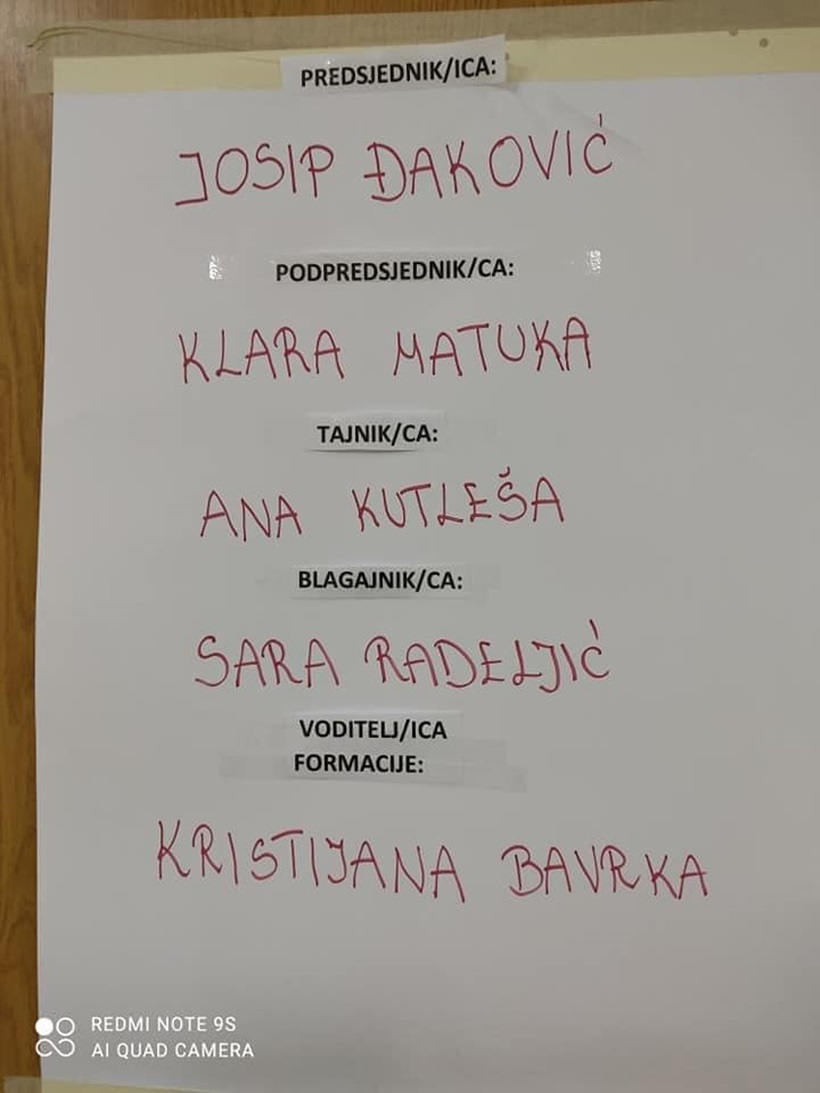 PREDSJEDNIK/ICA:
JOSIP ĐAKOVIĆ
PODPREDSJEDNIK/CA:
KLARA MATUKA
TAJNIK/CA:
ANA KUTLEŠA
BLAGAJNIK/CA:
SARA RADELJIĆ
VODITELJ/ICA
FORMACIJE:
KRISTIJANA BAVRKA
REDMI NOTE 9S
AI QUAD CAMERA